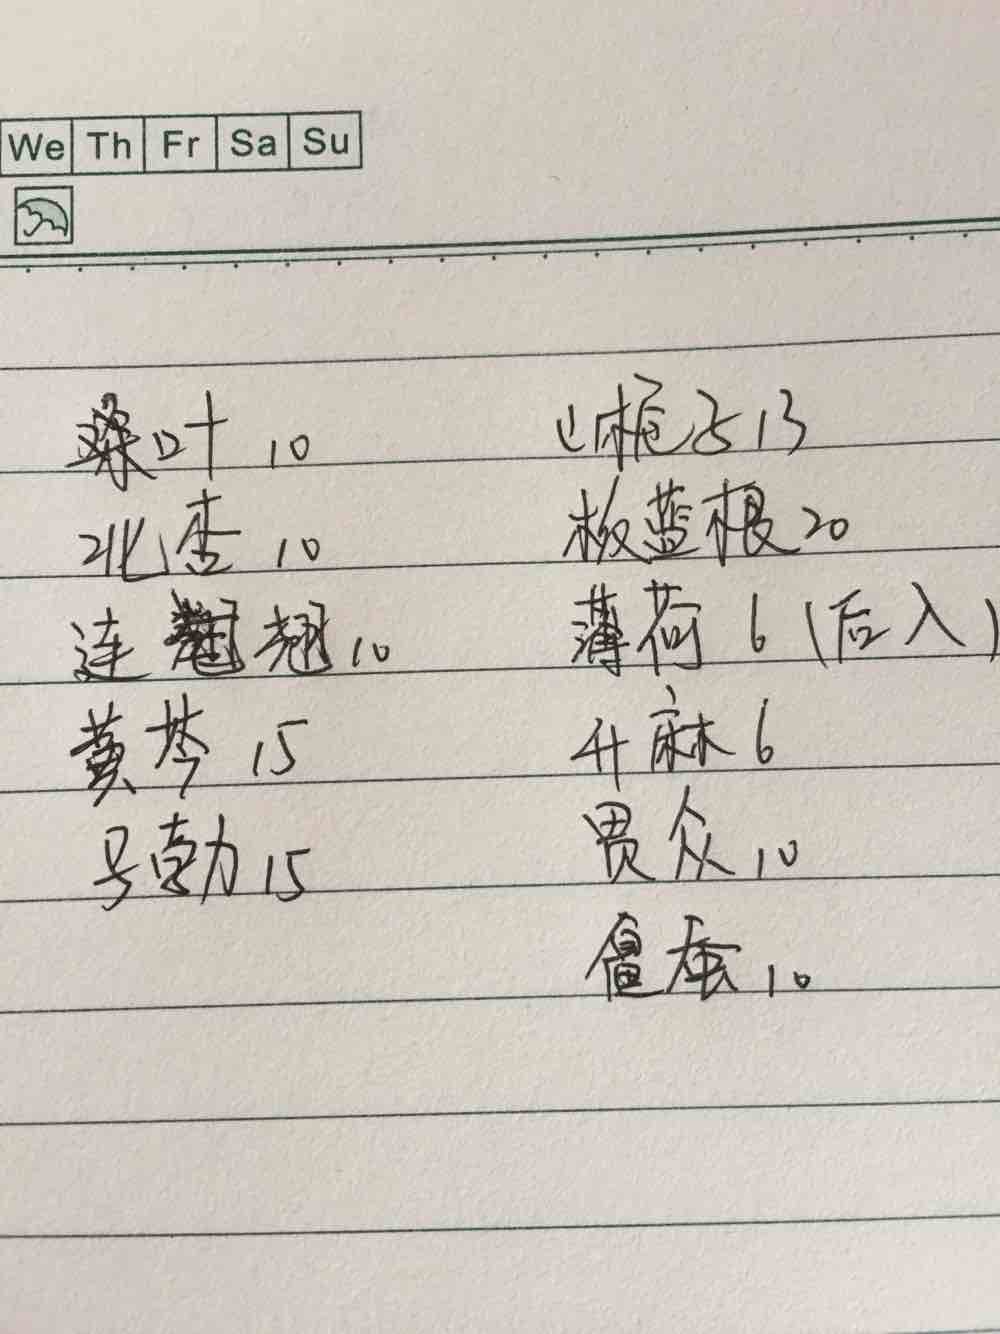 We Th Fr Sa Su
桑叶 10
北杏 10
连翘 10
黄芩 15
马勃 15
山栀子 13
板蓝根 20
薄荷 6 (后入)
升麻 6
贯众 10
僵蚕 10